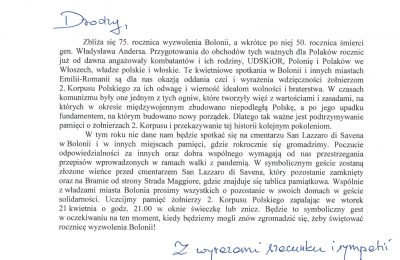 Drodzy,
Zbliża się 75. rocznica wyzwolenia Bolonii, a wkrótce po niej 50. rocznica śmierci
gen. Władysława Andersa. Przygotowania do obchodów tych ważnych dla Polaków rocznic
już od dawna angażowały kombatantów i ich rodziny, UDSKiOR, Polonię i Polaków we
Włoszech, władze polskie i włoskie. Te kwietniowe spotkania w Bolonii i innych miastach
Emilii-Romanii są dla nas okazją oddania czci i wyrażenia wdzięczności żołnierzom
2. Korpusu Polskiego za ich odwagę i wierność ideałom wolności i braterstwa. W czasach
komunizmu były one jednym z tych ogniw, które tworzyły więź z wartościami i zasadami, na
których w okresie międzywojennym zbudowano niepodległą Polskę, a po jego upadku
fundamentem, na którym budowano nowy porządek. Dlatego tak ważne jest podtrzymywanie
pamięci o żołnierzach 2. Korpusu i przekazywanie tej historii kolejnym pokoleniom.
W tym roku nie dane nam będzie spotkać się na cmentarzu San Lazzaro di Savena
w Bolonii i w innych miejscach pamięci, gdzie rokrocznie się gromadzimy. Poczucie
odpowiedzialności za innych oraz dobra wspólnego wymagają od nas przestrzegania
przepisów wprowadzonych w ramach walki z pandemią. W symbolicznym geście zostaną
złożone wieńce przed cmentarzem San Lazzaro di Savena, który pozostanie zamknięty
oraz na Bramie od strony Strada Maggiore, gdzie znajduje się tablica pamiątkowa. Wspólnie
z władzami miasta Bolonia prosimy wszystkich o pozostanie w swoich domach w geście
solidarności. Uczcijmy pamięć żołnierzy 2. Korpusu Polskiego zapalając we wtorek
21 kwietnia o godz. 21.00 w oknie świeczkę lub znicz. Będzie to symboliczny gest
w oczekiwaniu na ten moment, kiedy będziemy mogli znów zgromadzić się, żeby świętować
rocznicę wyzwolenia Bolonii!
Z wyrazami szacunku i sympatii